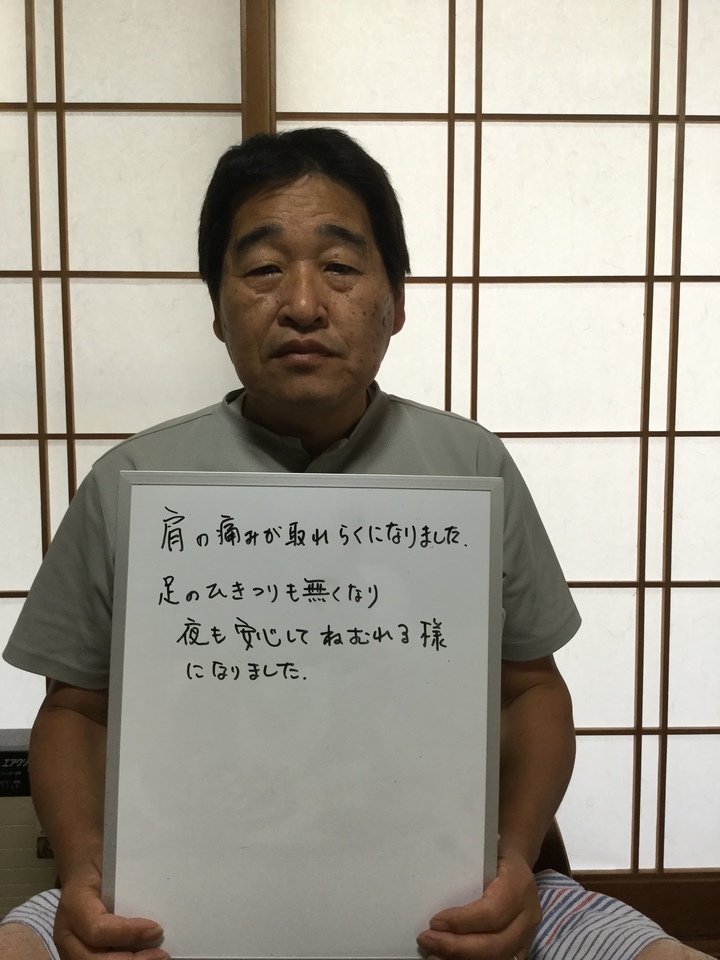 肩の痛みが取れらくになりました.
足のひきつりも無くなり
夜も安心してねむれる様
になりました.
エアクリ